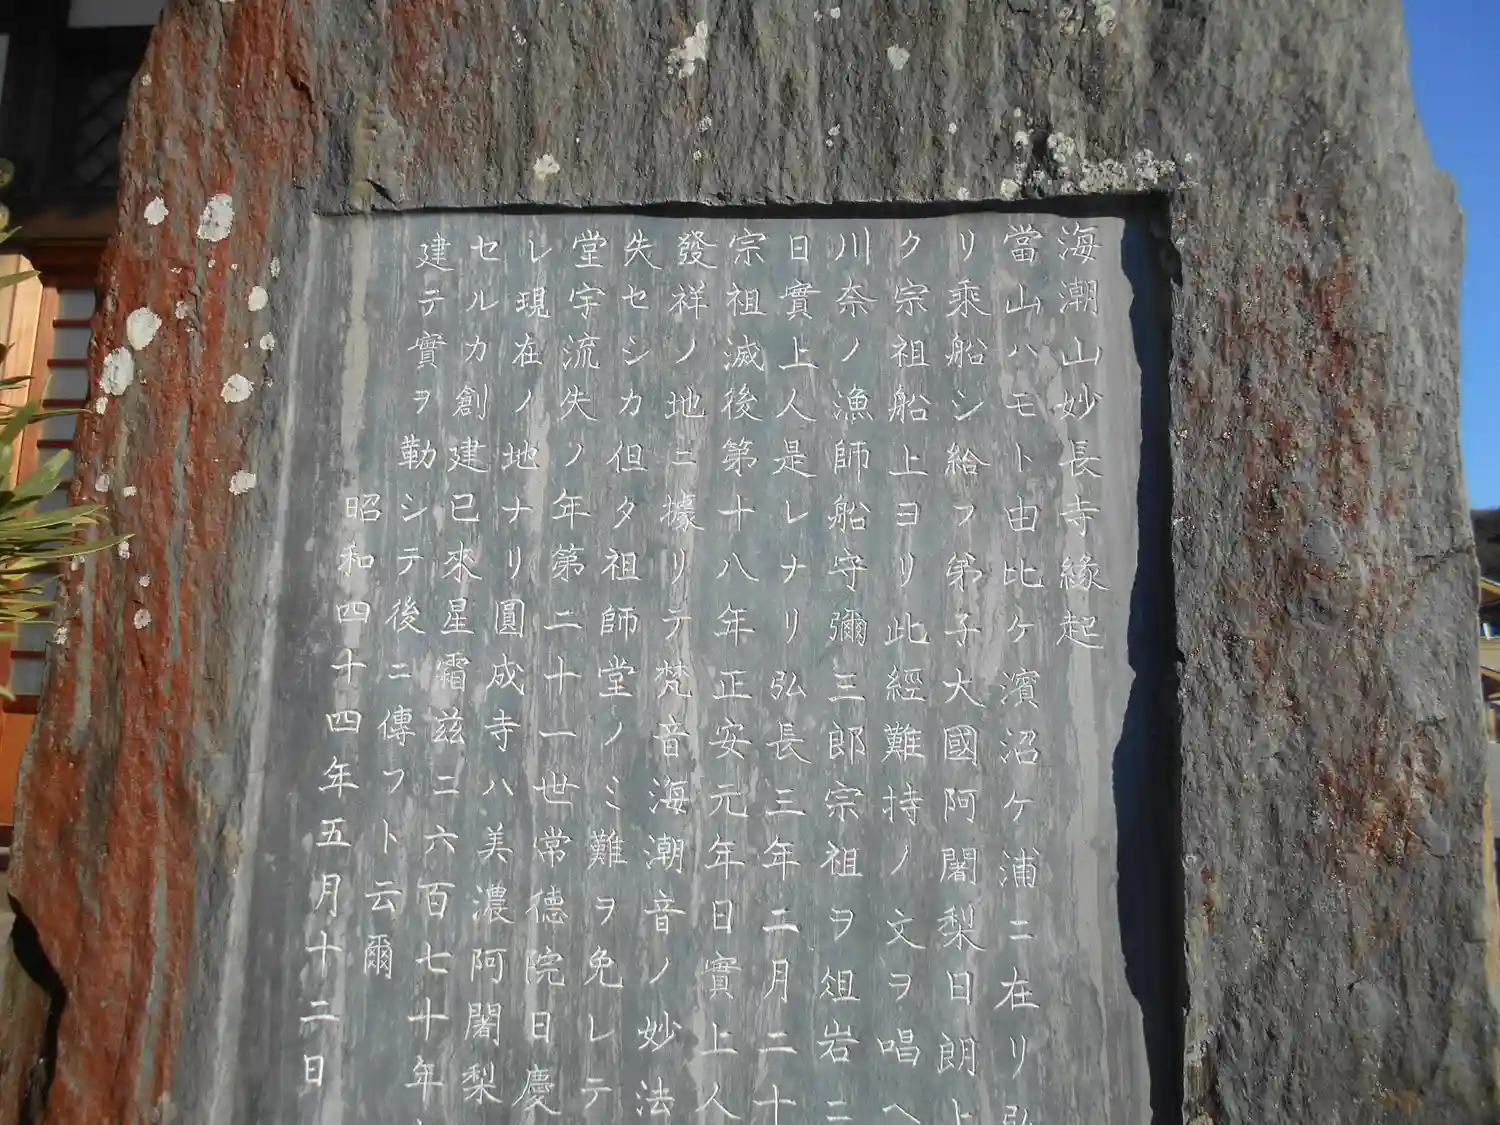 海潮山妙長寺縁起
當山ハモト由比ケ濱沼ケ浦ニ在リ弘
リ乘船シ給フ第子大國阿闍梨日朗上
ク宗祖船上ヨリ此經難持ノ文ヲ唱ヘ
川奈ノ漁師船守彌三郎宗祖ヲ俎岩ニ
日實上人是レナリ弘長三年二月二十
宗祖滅後第十八年正安元年日實上人
發祥ノ地ニ據リテ梵音海潮音ノ妙法
失セシカ但タ祖師堂ノミ難ヲ免レテ
堂宇流失ノ年第二十一世常德院日慶
レ現在ノ地ナリ圓成寺ハ美濃阿闍梨
セルカ創建已來星霜茲ニ六百七十年
建テ實ヲ勒シテ後ニ傳フト云爾
昭和四十四年五月十二日